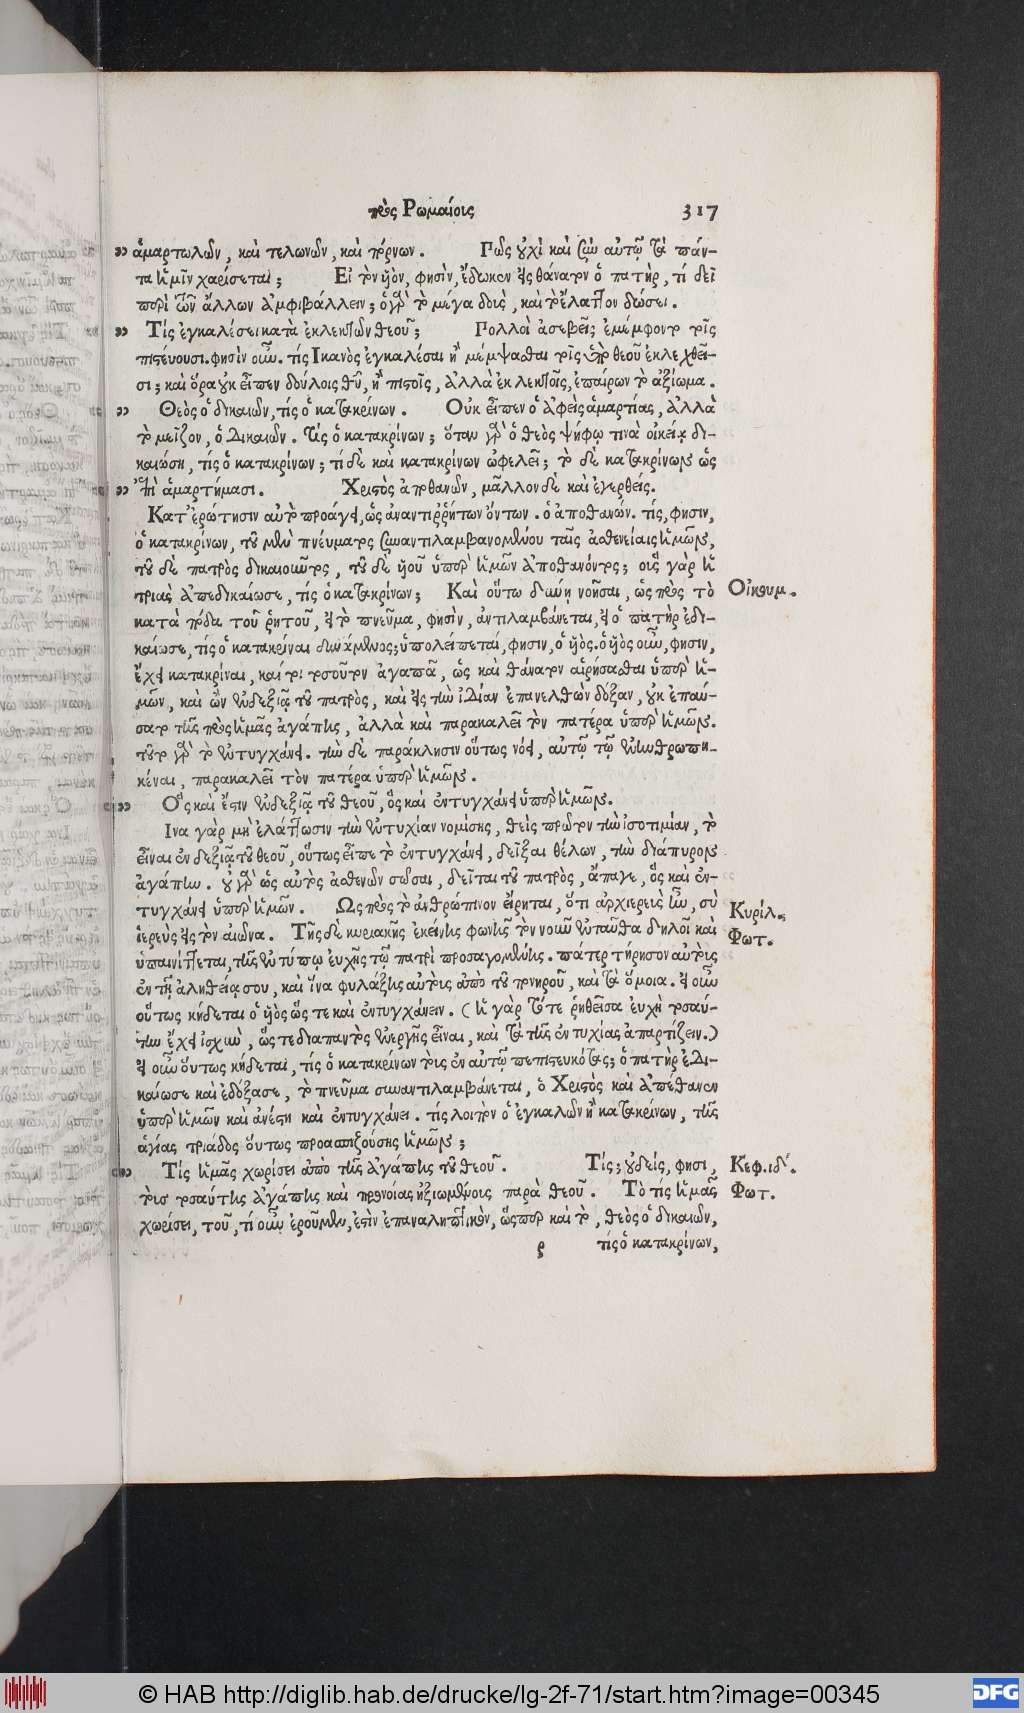 πρὸς Ρωμαίοις 317
ἁμαρτωλῶν, καὶ τελωνῶν, καὶ πόρνων. Πῶς οὐχὶ καὶ σὺν αὐτῷ τὰ πάν-
τα ἡμῖν χαρίσεται; Εἰ τὸν υἱὸν, φησὶν, ἔδωκεν εἰς θάνατον ὁ πατὴρ, τί δεῖ
περὶ τῶν ἄλλων ἀμφιβάλλειν; ὁ γὰρ τὸ μέγα δοὺς, καὶ τὸ ἔλαττον δώσει.
Τίς ἐγκαλέσει κατὰ ἐκλεκτῶν θεοῦ; Πολλοὶ ἀσεβεῖς ἐμέμφοντο τοῖς
πιστεύουσι. φησὶν οὖν. τίς ἱκανὸς ἐγκαλέσαι ἢ μέμψασθαι τοῖς ὑπὸ θεοῦ ἐκλεχθεῖ-
σι; καὶ ὅρα οὐκ εἶπεν δούλοις θεοῦ, ἢ πιστοῖς, ἀλλὰ ἐκλεκτοῖς, ἐπαίρων τὸ ἀξίωμα.
Θεὸς ὁ δικαιῶν, τίς ὁ κατακρίνων. Οὐκ εἶπεν ὁ ἀφεὶς ἁμαρτίας, ἀλλὰ
τὸ μεῖζον, ὁ δικαιῶν. τίς ὁ κατακρίνων; ὅταν γὰρ ὁ θεὸς ψήφῳ τινὰ οἰκείᾳ δι-
καιώσῃ, τίς ὁ κατακρίνων; τί δὲ καὶ κατακρίνων ὠφελεῖ; τὸ δὲ κατακρίνων ὡς
ἐπὶ ἁμαρτήμασι. Χριστὸς ἀποθανὼν, μᾶλλον δὲ καὶ ἐγερθείς.
Κατ' ἐρώτησιν αὐτὸ προάγει, ὡς ἀναντιρρήτων ὄντων. ὁ ἀποθανών. τίς, φησιν,
ὁ κατακρίνων, τοῦ μὲν πνεύματος συναντιλαμβανομένου ταῖς ἀσθενείαις ἡμῶν,
τοῦ δὲ πατρὸς δικαιοῦντος, τοῦ δὲ υἱοῦ ὑπὲρ ἡμῶν ἀποθανόντος; οἷς γὰρ ἡ
τριὰς ἀπεδικαίωσε, τίς ὁ κατακρίνων; Καὶ οὕτω δὲ νοῆσαι, ὡς πρὸς τὸ Οἰκουμ.
κατὰ πόδα τοῦ ῥητοῦ, εἰ τὸ πνεῦμα, φησὶν, ἀντιλαμβάνεται, εἰ ὁ πατὴρ ἐδι-
καίωσε, τίς ὁ κατακρῖναι δυνάμενος; ὑπολείπεται, φησιν, ὁ υἱός. ὁ υἱὸς οὖν, φησιν,
ἔχει κατακρῖναι, καί τοι τοσοῦτον ἀγαπᾷ, ὡς καὶ θάνατον αἱρήσασθαι ὑπὲρ ἡ-
μῶν, καὶ ὢν ἐν δεξιᾷ τοῦ πατρὸς, καὶ εἰς τὴν ἰδίαν ἐπανελθὼν δόξαν, οὐκ ἐπαύ-
σατο τῆς πρὸς ἡμᾶς ἀγάπης, ἀλλὰ καὶ παρακαλεῖ τὸν πατέρα ὑπὲρ ἡμῶν.
τοῦτο γὰρ τὸ ἐντυγχάνει. τὴν δὲ παράκλησιν οὕτως νόει, αὐτῷ τῷ ἐνηνθρωπη-
κέναι, παρακαλεῖ τὸν πατέρα ὑπὲρ ἡμῶν.
Ὅς καὶ ἔστιν ἐν δεξιᾷ τοῦ θεοῦ, ὃς καὶ ἐντυγχάνει ὑπὲρ ἡμῶν.
Ινα γὰρ μὴ ἐλάττωσιν τὴν ἐντυχίαν νομίσῃς, θεὶς πρῶτον τὴν ἰσοτιμίαν, τὸ
εἶναι ἐν δεξιᾷ τοῦ θεοῦ, οὕτως εἶπε τὸ ἐντυγχάνει, δεῖξαι θέλων, τὴν διάπυρον
ἀγάπην. οὐ γὰρ ὡς αὐτὸς ἀσθενῶν σῶσαι, δεῖται τοῦ πατρὸς, ἄπαγε, ὃς καὶ ἐν-
τυγχάνει ὑπὲρ ἡμῶν. Ως πρὸς τὸ ἀνθρώπινον εἴρηται, ὅτι ἀρχιερεὺς ἦν, σὺ Κυρίλ.
ἱερεὺς εἰς τὸν αἰῶνα. Τῆς δὲ κυριακῆς ἐκείνης φωνῆς τὸν νοῦν ἐνταῦθα δηλοῖ καὶ Φωτ.
ὑπαινίττεται, τῆς ἐν τύπῳ εὐχῆς τῷ πατρὶ προσαγομένης. πάτερ τήρησον αὐτοὺς
ἐν τῇ ἀληθείᾳ σου, καὶ ἵνα φυλάξῃς αὐτοὺς ἀπὸ τοῦ πονηροῦ, καὶ τὰ ὅμοια. εἰ οὖν
οὕτως κήδεται ὁ υἱὸς ὥστε καὶ ἐντυγχάνειν. (ἡ γὰρ τότε ῥηθεῖσα εὐχὴ τοσαύ-
την ἔχει ἰσχὺν, ὥστε διαπαντὸς ἐνεργὴς εἶναι, καὶ τὰ τῆς ἐντυχίας ἀπαρτίζειν.)
εἰ οὖν οὕτως κήδεται, τίς ὁ κατακρίνων τοὺς ἐν αὐτῷ πεπιστευκότας; ὁ πατὴρ ἐδι-
καίωσε καὶ ἐδόξασε, τὸ πνεῦμα συναντιλαμβάνεται, ὁ Χριστὸς καὶ ἀπέθανεν
ὑπὲρ ἡμῶν καὶ ἀνέστη καὶ ἐντυγχάνει. τίς λοιπὸν ὁ ἐγκαλῶν ἢ κατακρίνων, τῆς
ἁγίας τριάδος οὕτως προασπιζούσης ἡμῶν;
Τίς ἡμᾶς χωρίσει ἀπὸ τῆς ἀγάπης τοῦ θεοῦ. Τίς; οὐδείς, φησι, Κεφ. ιδ'.
τοὺς τοσαύτης ἀγάπης καὶ προνοίας ἠξιωμένους παρὰ θεοῦ. Τὸ τίς ἡμᾶς Φωτ.
χωρίσει, τοῦ, τί οὖν ἐροῦμεν, ἐστὶν ἐπαναληπτικὸν, ὥσπερ καὶ τὸ, θεὸς ὁ δικαιῶν,
ρ τίς ὁ κατακρίνων,
© HAB http://diglib.hab.de/drucke/lg-2f-71/start.htm?image=00345
DFG